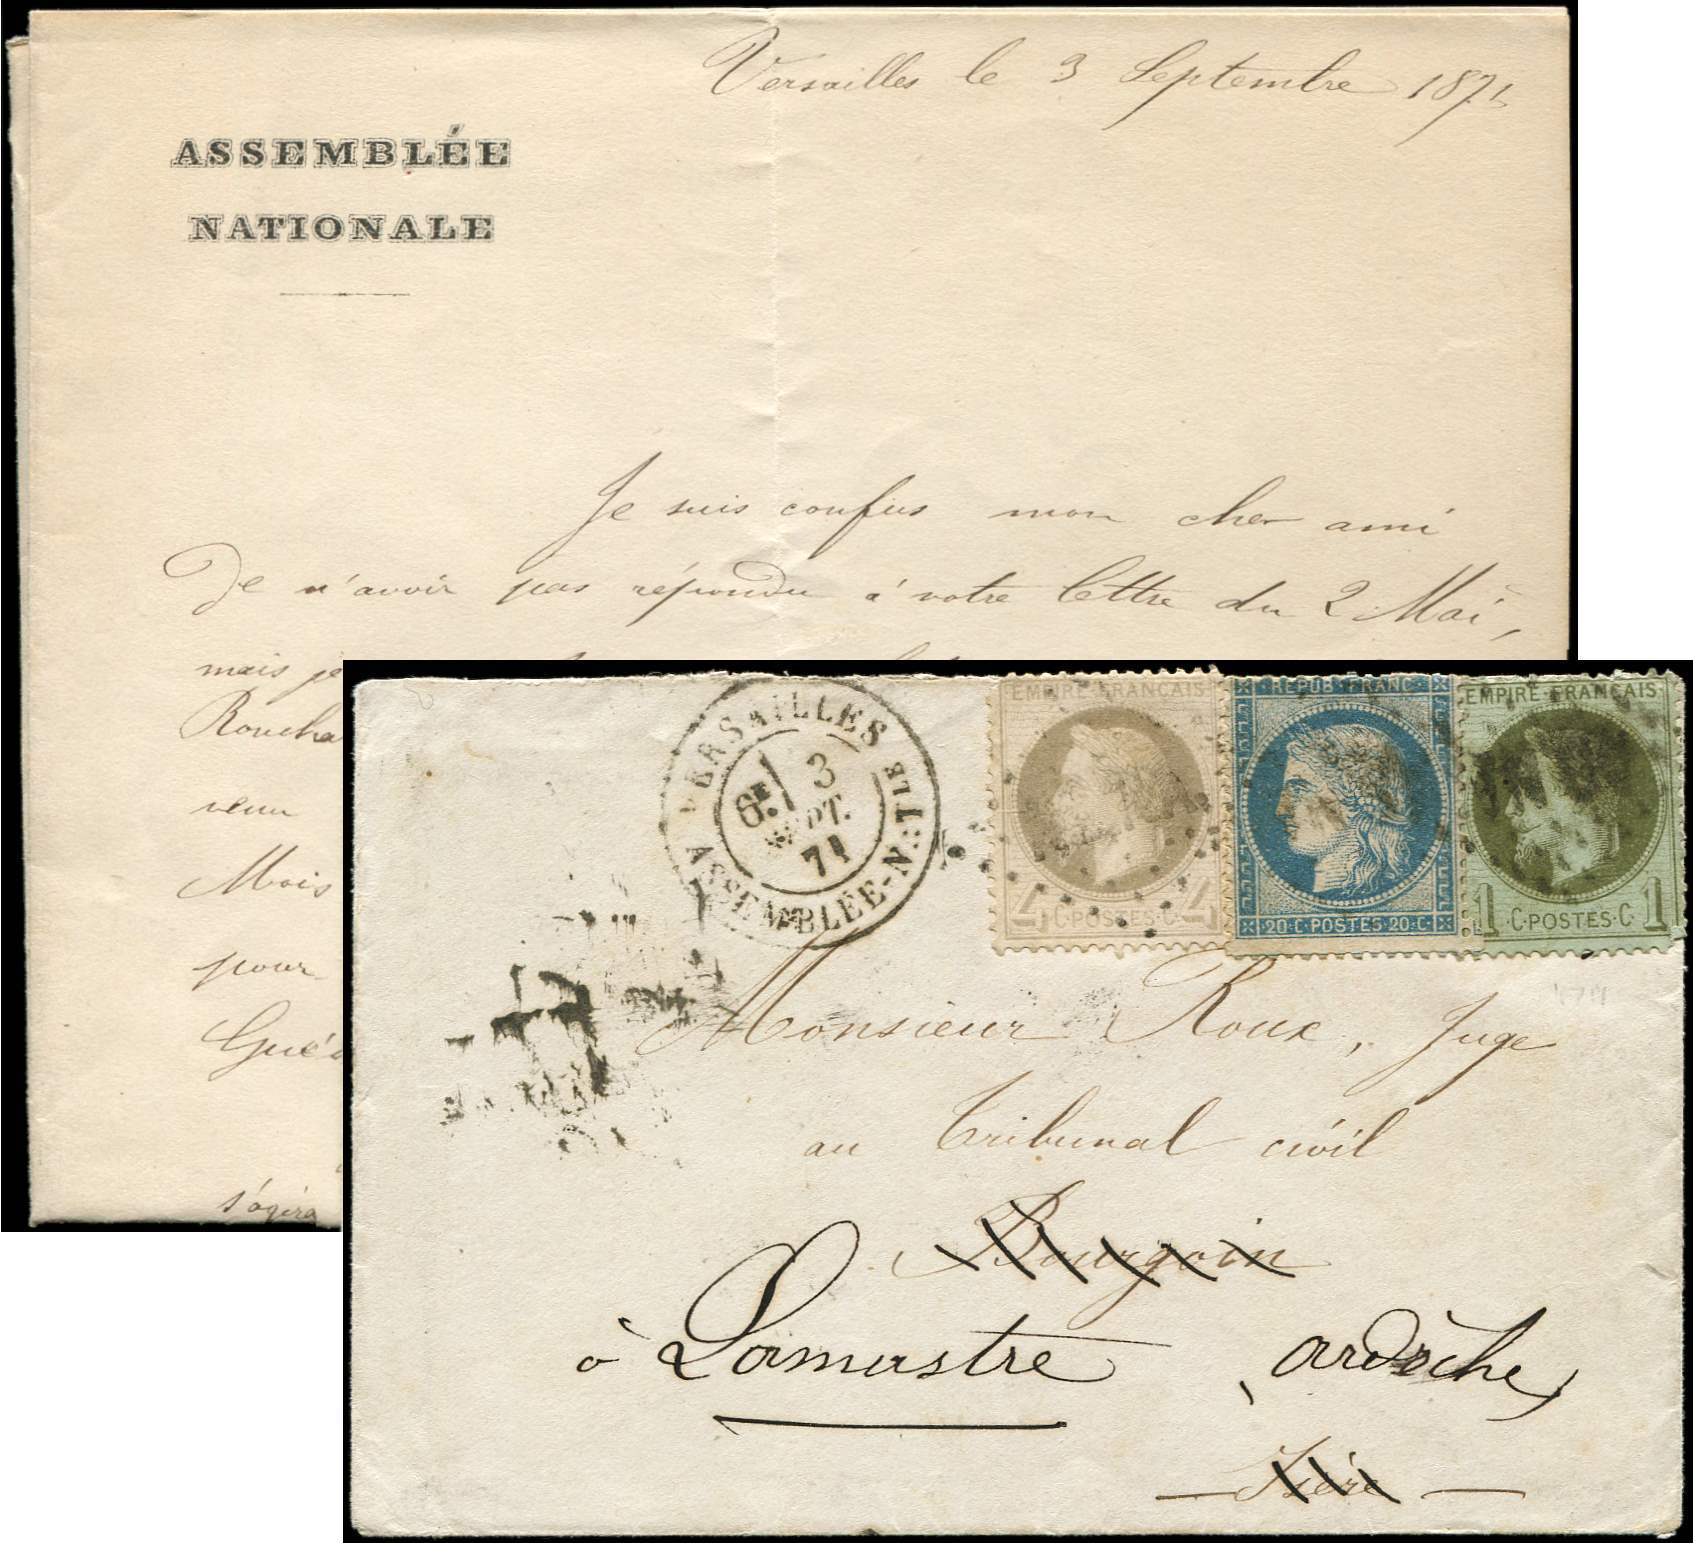 Versailles le 3 Septembre 1871
ASSEMBLÉE
NATIONALE
Je suis confus mon cher ami
De n'avoir pas répondu à votre lettre du 2 Mai,
mais je
Roucha
venu
Mois
pour
Gué
s'agira
VERSAILLES
6E 3
SEPT.
71
ASSEMBLÉE-N.TLE
EMPIRE FRANÇAIS
4 C. POSTES C. 4
REPUB. FRANC.
20 C. POSTES 20 C.
EMPIRE FRANÇAIS
1 C. POSTES C. 1
Monsieur Roux, Juge
au Tribunal civil
Bourgoin
à Lamastre, ardèche
Isère